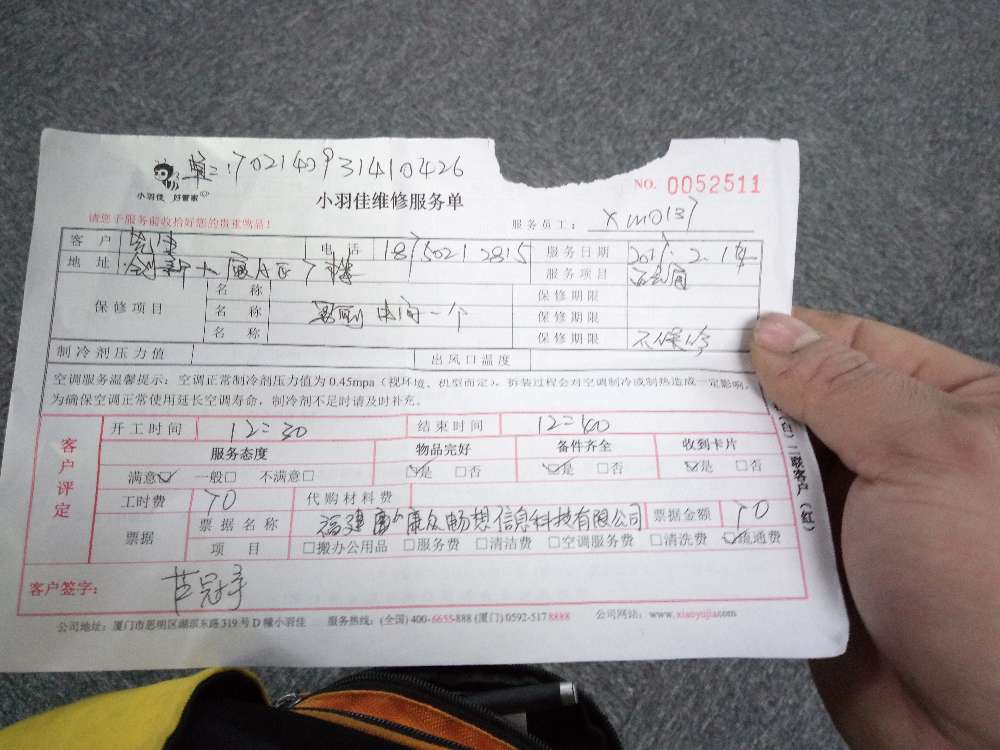 702140931410426
小羽佳 好管家
小羽佳维修服务单
NO. 0052511
请您于服务前收拾好您的贵重物品！
服务员工： XM0137
客 户 电 话 18750212815 服务日期 2017.2.14
地 址 服务项目
保修项目 名 称 保修期限
名 称 一个 保修期限
名 称 保修期限 不保修
制冷剂压力值 出风口温度
空调服务温馨提示：空调正常制冷剂压力值为 0.45mpa（视环境、机型而定），拆装过程会对空调制冷或制热造成一定影响。
为确保空调正常使用延长空调寿命，制冷剂不足时请及时补充。
客户评定
开工时间 12=30 结束时间 12=40
服务态度 物品完好 备件齐全 收到卡片
满意☑ 一般□ 不满意□ ☑是 □否 ☑是 □否 ☑是 □否
工时费 70 代购材料费
票据 票据名称 福建 众畅想信息科技有限公司 票据金额 70
项 目 □搬办公用品 □服务费 □清洁费 □空调服务费 □清洗费 ☑疏通费
客户签字：
（白）二联客户（红）
公司地址：厦门市思明区湖滨东路 319 号 D 幢小羽佳 服务热线：(全国) 400-6655-888 (厦门) 0592-517 8888 公司网站：www.xiaoyujia.com